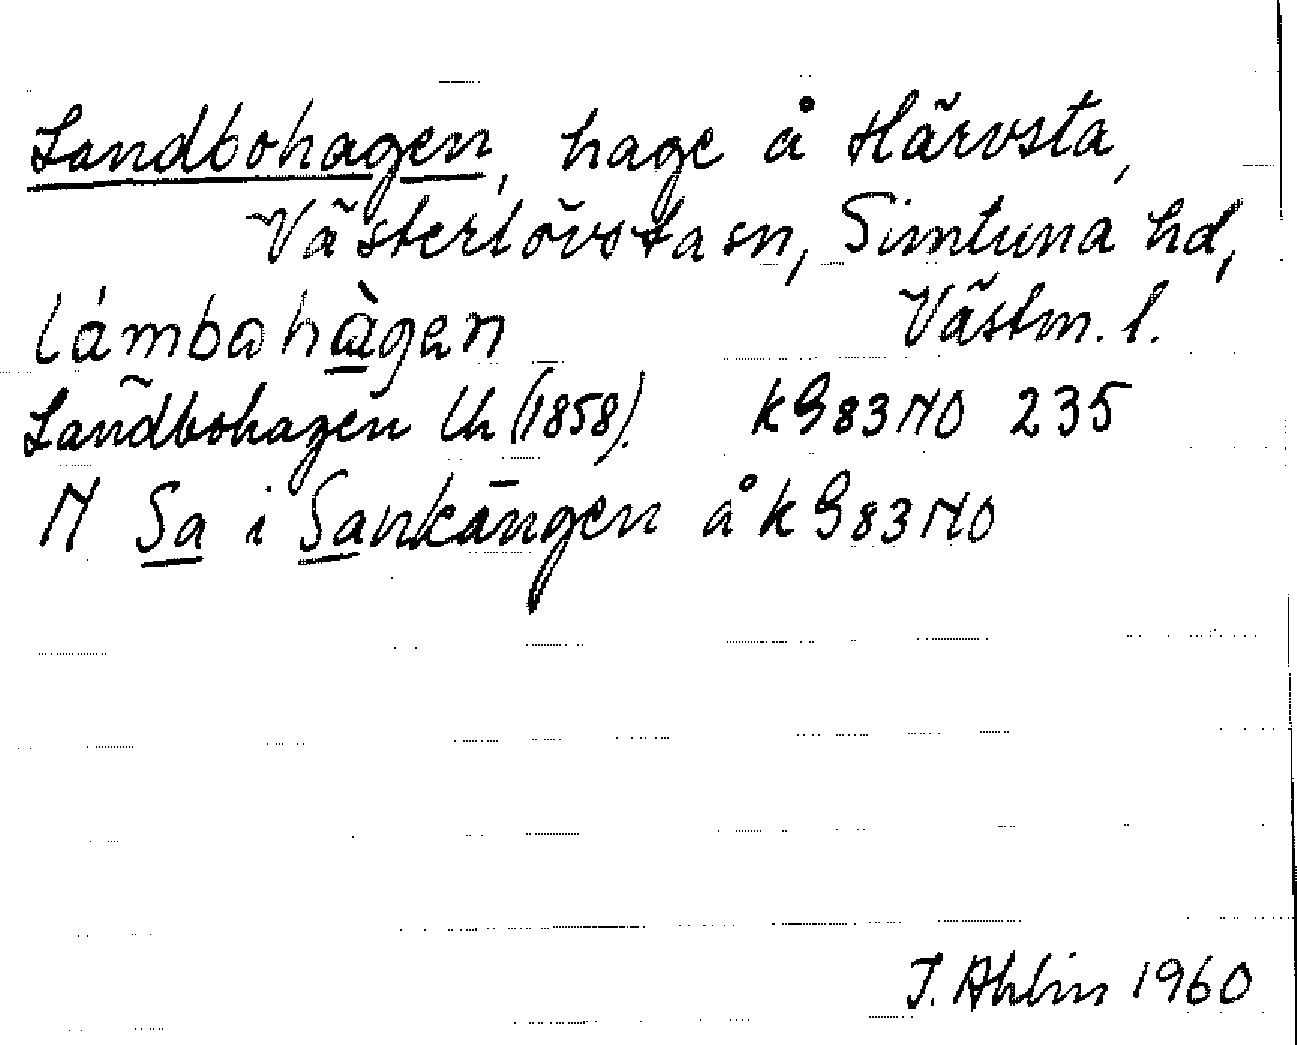 Landbohagen, hage å Härvsta,
Västerlövsta sn, Simtuna hd,
Västm. l.
lámbohàgen
Landbohagen Lh (1858). k G83 NO 235
N Sa i Sankängen å k G83 NO
J. Ahlin 1960